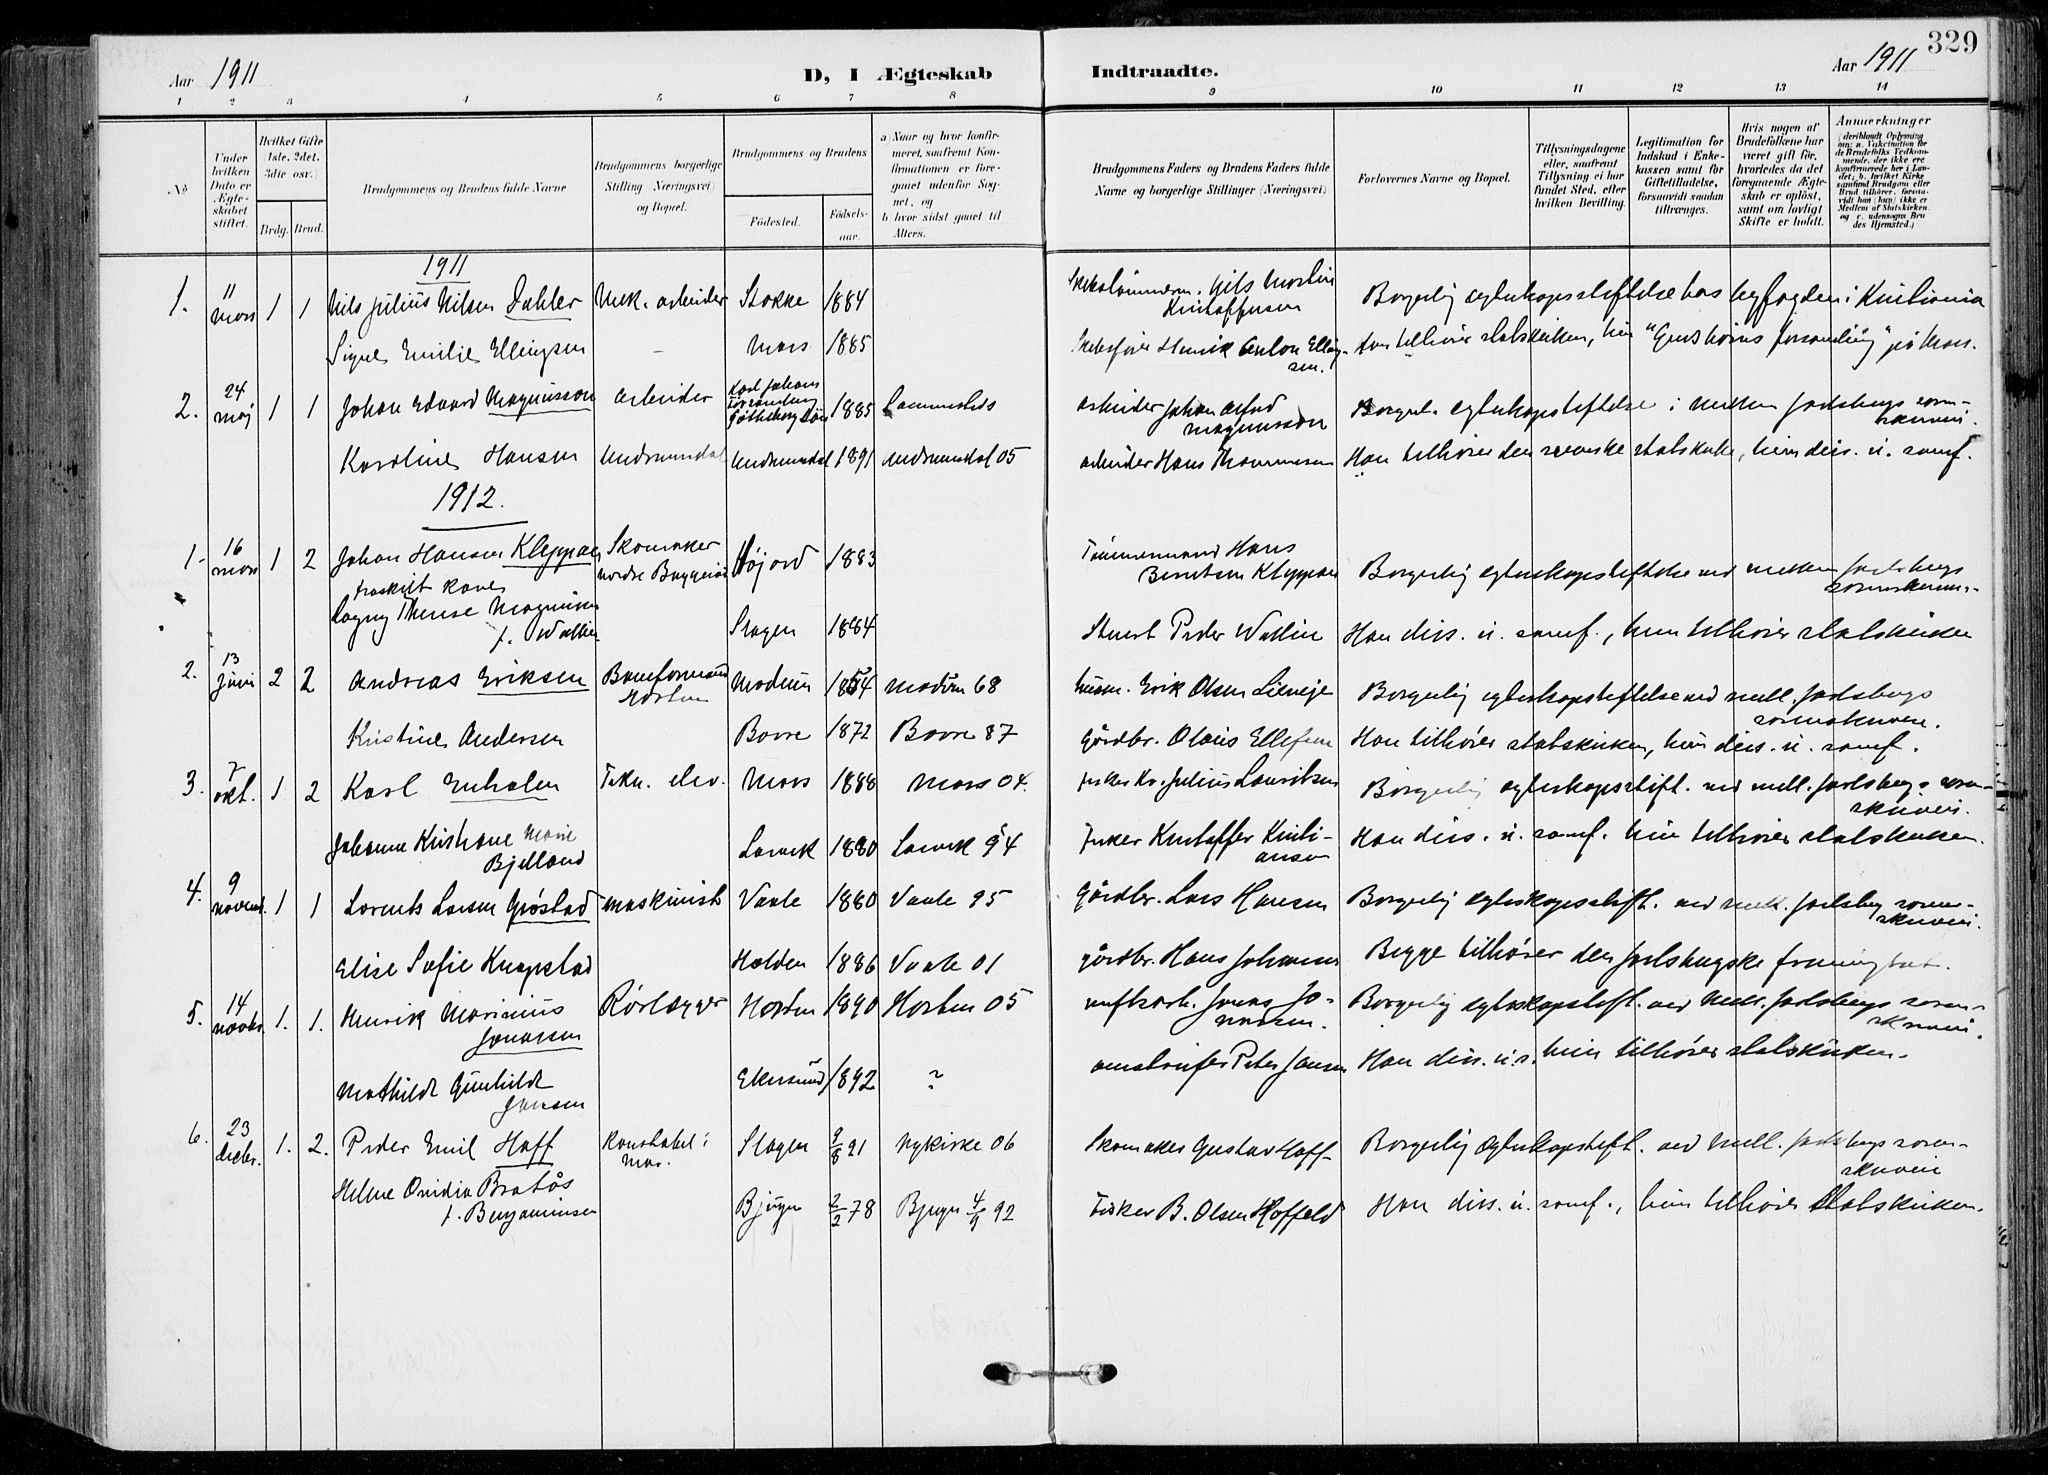 329
Aar 1911
D, I Ægteskab
Indtraadte.
Aar 1911
1 2 3 4 5 6 7 8 9 10 11 12 13 14
No
Under hvilken Dato er Ægteskabet stiftet.
Hvilket Gifte 1ste, 2det, 3die osv.)
Brdg. Brud.
Brudgommens og Brudens fulde Navne
Brudgommens borgerlige Stilling (Næringsvei) og Bopæl.
Brudgommens og Brudens
Fødested.
Fødselsaar.
a) Naar og hvor konfirmeret, saafremt Konfirmationen er foregaaet udenfor Sognet, og
b) hvor sidst gaaet til Alters.
Brudgommens Faders og Brudens Faders fulde Navne og borgerlige Stillinger (Næringsvei)
Forlovernes Navne og Bopæl.
Tillysningsdagene eller, saafremt Tillysning ei har fundet Sted, efter hvilken Bevilling.
Legitimation for Indskud i Enkekassen samt for Giftetilladelse, forsaavidt saadan tiltrænges.
Hvis nogen af Brudefolkene har været gift før, hvorledes da det foregaaende Ægteskab er opløst, samt om lovligt Skifte er holdt.
Anmerkninger
(deriblandt Oplysning om: a. Vakcination for de Brudefolks Vedkommende, der ikke ere konfirmerede her i Landet; b. hvilket Kirkesamfund Brudgom eller Brud tilhører, forsaavidt han (hun) ikke er Medlem af Statskirken, og c. udensogns Brudes Hjemsted.)
1911
1. 11 mars 1 1 Nils Julius Nilsen Dahler Mek. arbeider Stokke 1884 Nils Martin Kristoffersen Borgerlig egteskapsstiftelse hos byfogden i Kristiania
Signe Emilie Ellingsen - Moss 1885 Henrik Anton Ellingsen. tilhører statskirken, hun
2. 24 maj 1 1 Johan Edvard Magnusson arbeider Karl Johans Församling Götheborg 1885 arbeider Johan Alfred Magnusson Borgerl. egteskapsstiftelse i mellem Jarlsbergs sorenskriveri.
Karoline Hansen Undrumsdal Undrumsdal 1891 Undrumsdal 05 arbeider Hans Thommesen Han tilhører den svenske statskirke, hun diss. u. samf.
1912.
1. 16 mars 1 2 Johan Hansen Kleppan Skomaker nordre Høijord 1883 Tømmermand Hans Berntsen Kleppan Borgerlig egteskapsstiftelse ved mellem Jarlsbergs sorenskriveri.
fraskilt kone Dagny Therese Magnusen f. Wallin Slagen 1884 Peder Wallin Han diss. u. samf., hun tilhører statskirken
2. 13 Juni 2 2 Andreas Eriksen Baneformand Horten Modum 1854 Modum 68 husm. Erik Olsen Borgerlig egteskapsstiftelse ved mell. Jarlsbergs sorenskriveri.
Kristine Andersen Borre 1872 Borre 87 Gårdbr. Olaus Ellefsen Han tilhører statskirken, hun diss. u. samf.
3. 7 okt. 1 2 Karl Enholm Tekn. elev. Moss 1888 Moss 04. Julius Lauritzen Borgerlig egteskapsstift. ved mell. Jarlsbergs sorenskriveri.
Johanne Kristiane Marie Bjelland Larvik 1880 Larvik 94 Kristoffer Kristiansen Han diss. u. samf. hun tilhører statskirken.
4. 9 novemb. 1 1 Lorents Larsen Grøstad maskinist Vaale 1880 Vaale 95 Gårdbr. Lars Hansen Borgerlig egteskapsstift. ved mell. Jarlsberg sorenskriveri.
Elise Sofie Knapstad Halden 1886 Vaale 01 gårdbr. Hans Johansen Begge tilhører den Jarlsbergske frimenighet.
5. 14 novbr. 1. 1. Henrik Marinius Jonassen Rørlægger Horten 1890 Horten 05 verftsarb. Jonas Jonassen. Borgerlig egteskapsstift. ved mell. Jarlsbergs sorenskriveri.
Mathilde Gunhilde Jansen Ekersund 1892 ? Peter Jansen Han diss. u. s. hun tilhører statskirken.
6. 23 decbr. 1. 2. Peder Emil Hoff Konstabel i mar. Slagen 9/8 91 Nykirke 06 Skomaker Gustav Hoff Borgerlig egteskapsstift. ved mell. Jarlsbergs sorenskriveri
Helene Ovidia Bratås f. Benjaminsen Bjugn 2/2 78 Bjugn 4/9 92 Fisker B. Olsen Hoffeld Han diss. u. samf., hun tilhører Statskirken.